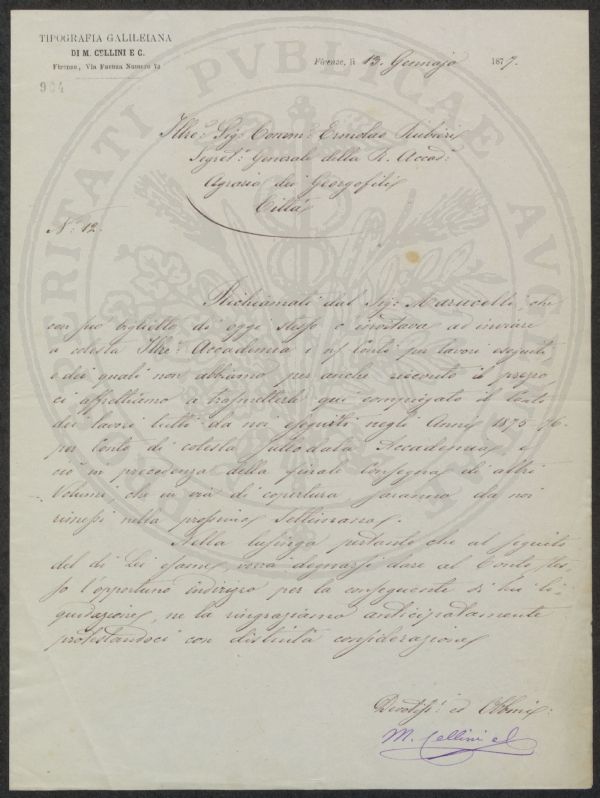 TIPOGRAFIA GALILEIANA
DI M. CELLINI E C.
Firenze, Via Faenza Numero 72
904
Firenze, li 13. Gennajo 1877.
Illre. Sig. Comm. Ermolao Rubieri
Segret. Generale della R. Accad.
Agraria dei Georgofili
Città
N. 12.
Richiamati dal Sig. Marucelli, che
con suo biglietto di oggi stesso c'invitava ad inviare
a cotesta Illre. Accademia i ns/ Conti per lavori eseguiti
e dei quali non abbiamo per anche riscosso il prezzo,
ci affrettiamo a trasmetterle qui compiegato il Conto
dei lavori tutti da noi eseguiti negli Anni 1875-76
per Conto di cotesta sullodata Accademia, e
ciò in precedenza della finale Consegna di altri
Volumi che in via di copertura saranno da noi
rimessi nella prossima Settimana.
Nella lusinga pertanto che al seguito
del di Lei esame, vorrà degnarsi dare al Conto stes-
so l'opportuno indirizzo per la conseguente di lui li-
quidazione, ne la ringraziamo anticipatamente
protestandoci con distinta considerazione
Devotissi. ed Obbmi.
M. Cellini e C.
VERITATI PVBLICAE AVGENDAE